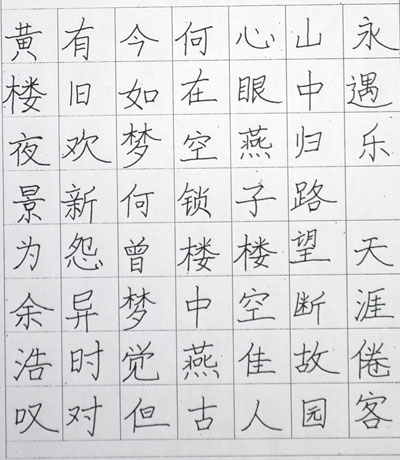 永遇乐 天涯倦客
山中归路望断故园
心眼燕子楼空佳人
何在空锁楼中燕古
今如梦何曾梦觉但
有旧欢新怨异时对
黄楼夜景为余浩叹